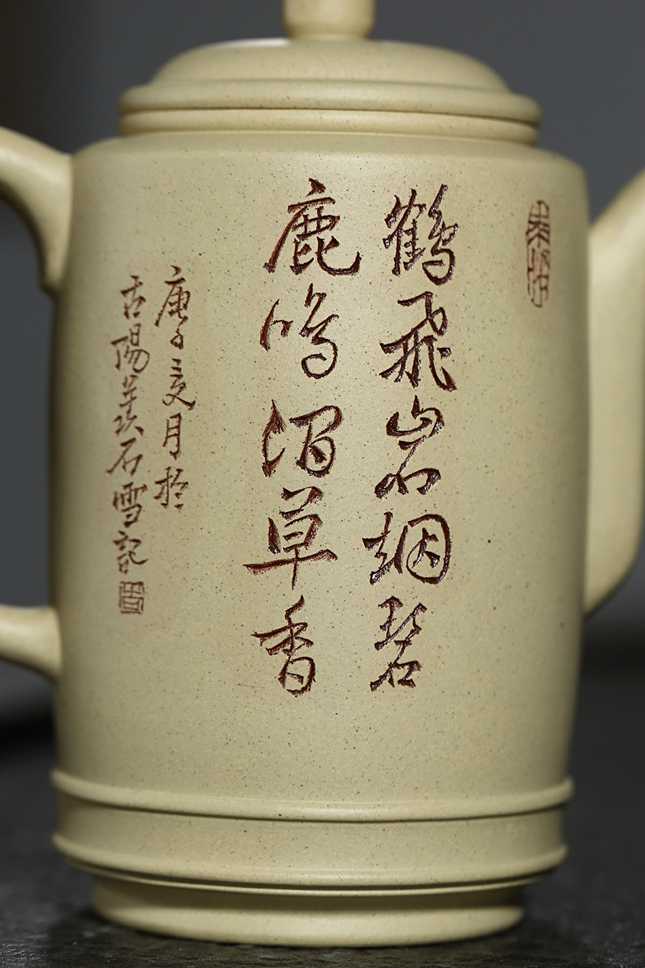 鹤飛岩烟碧
鹿鸣涧草香
庚子夏月於
古陽羡石雪記